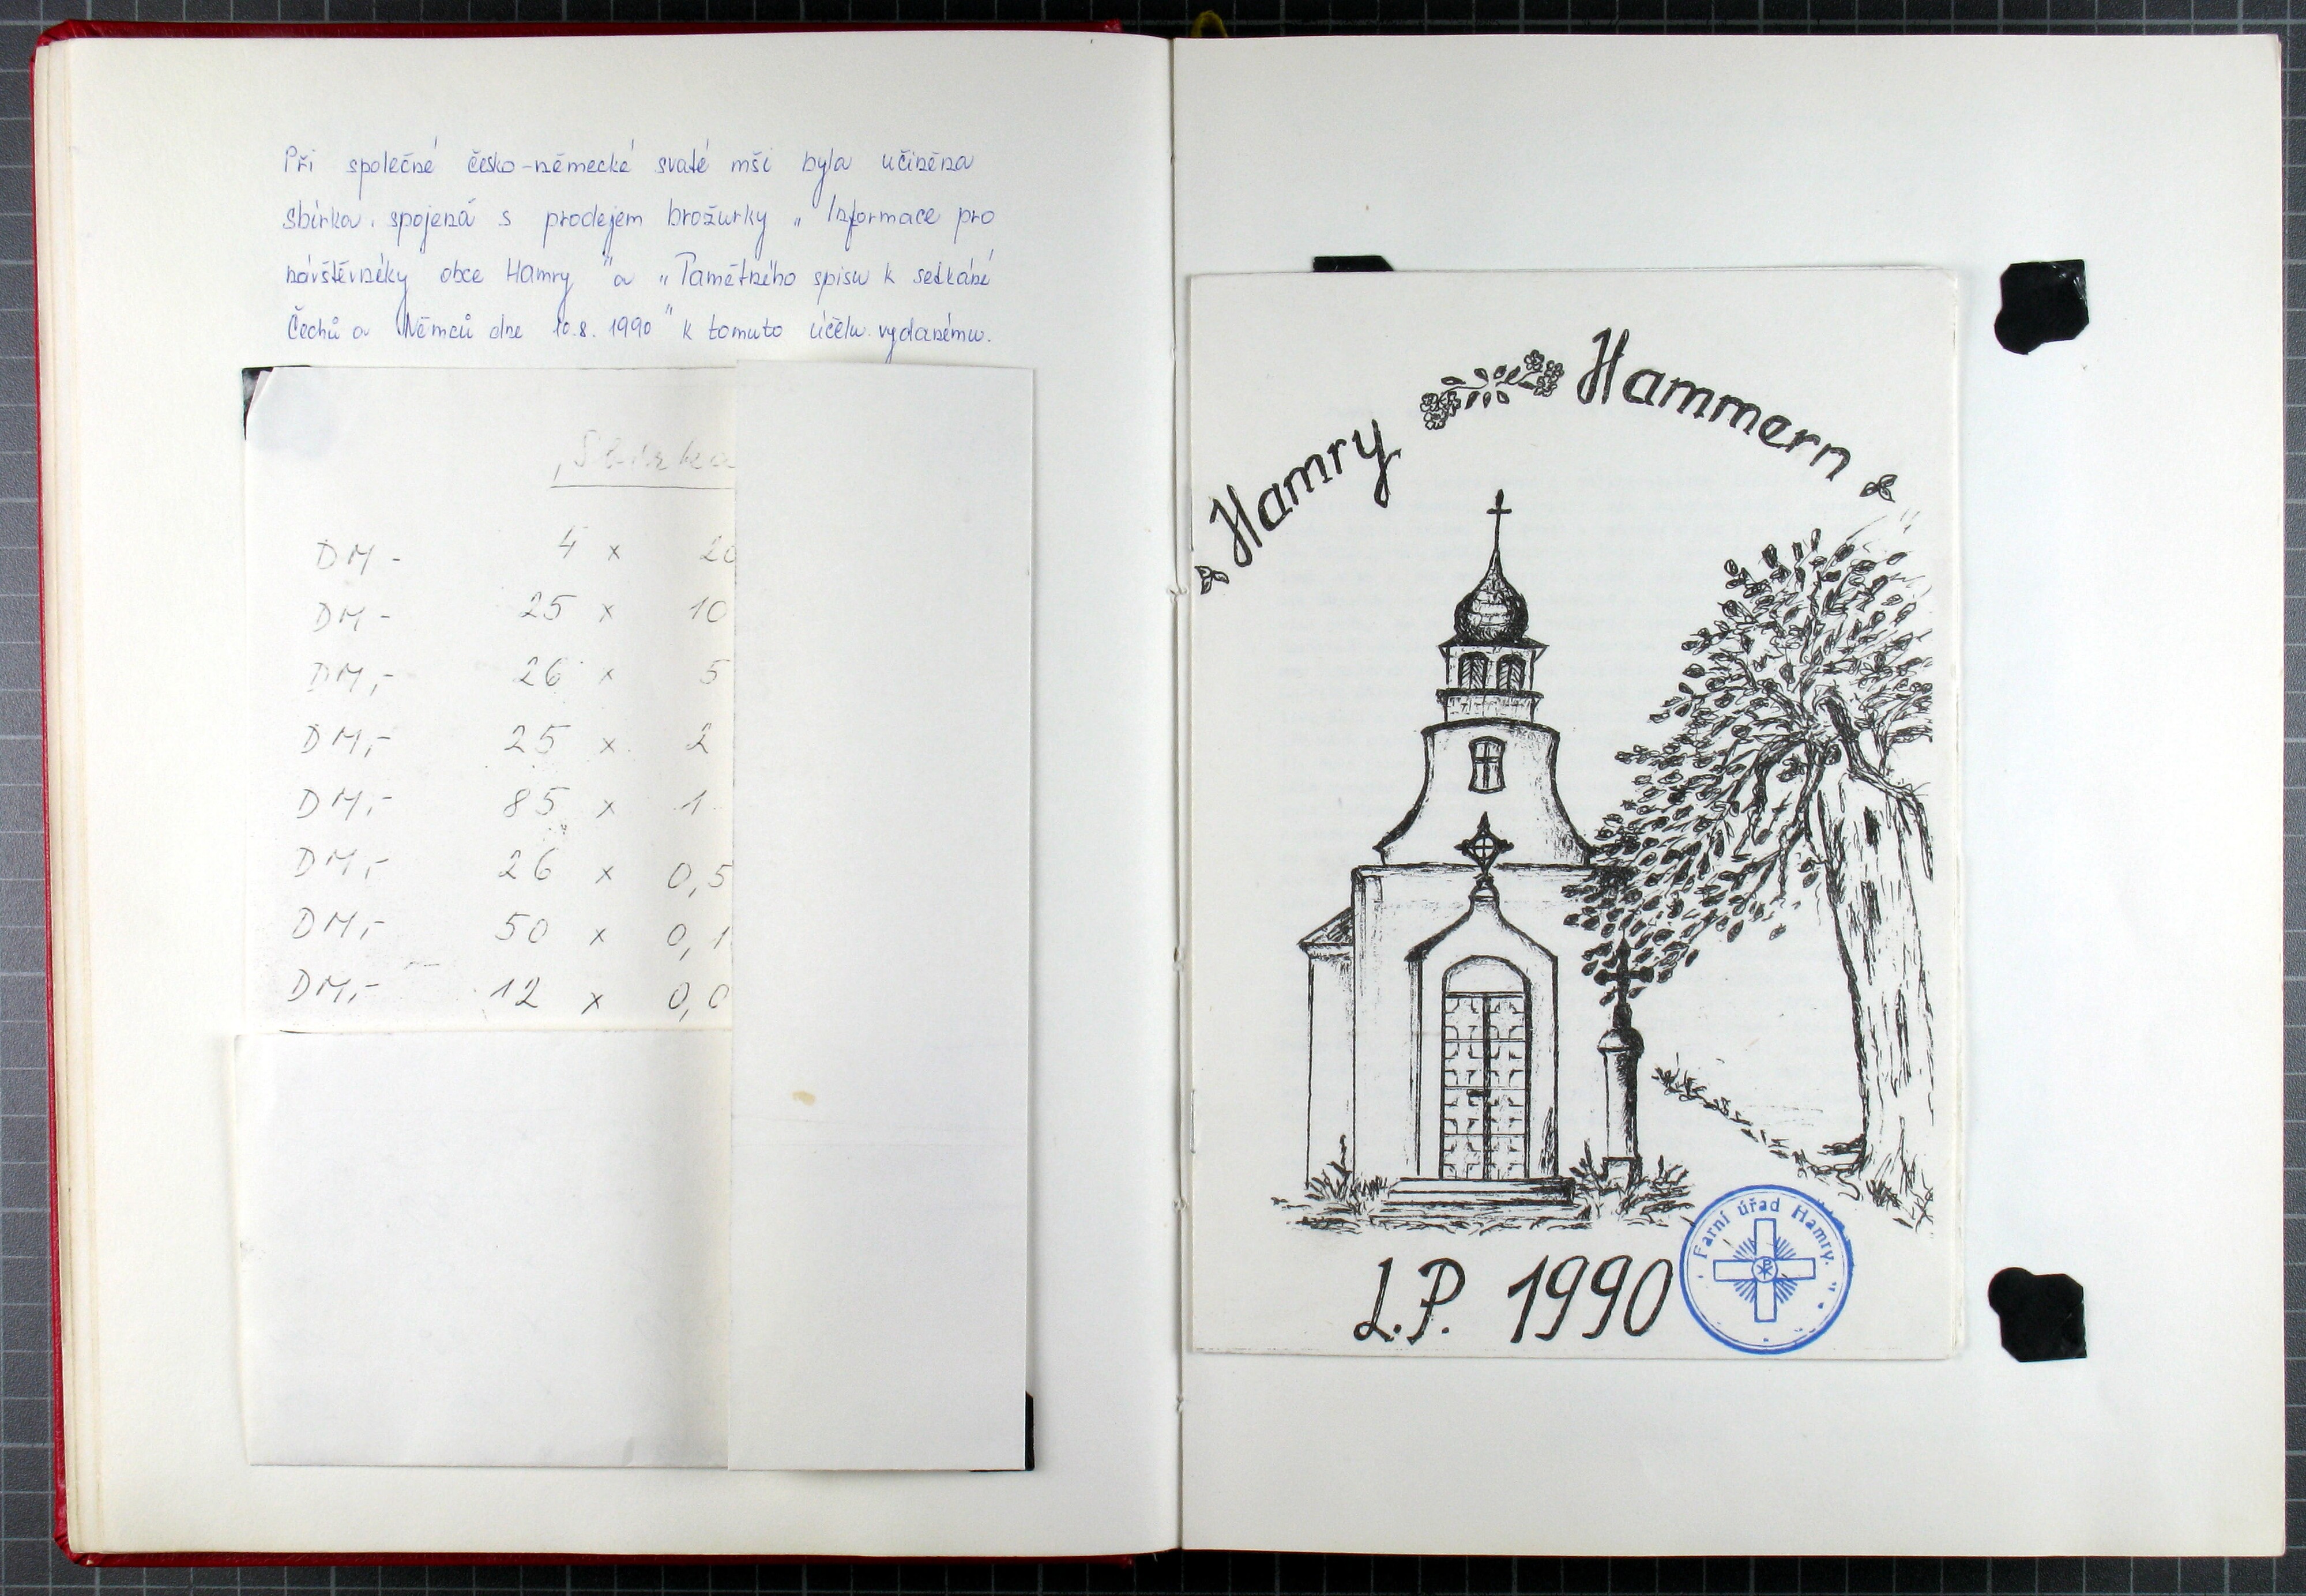 Při společné česko-německé svaté mši byla učiněna
sbírka spojená s prodejem brožurky „Informace pro
návštěvníky obce Hamry" a „Pamětního spisu k setkání
Čechů a Němců dne 10.8. 1990" k tomuto účelu vydanému.
„Sbírka
DM- 4 x 20
DM- 25 x 10
DM,- 26 x 5
DM,- 25 x 2
DM,- 85 x 1
DM,- 26 x 0,5
DM,- 50 x 0,1
DM,- 12 x 0,0
Hamry Hammern
L.P. 1990
Farní úřad Hamry.